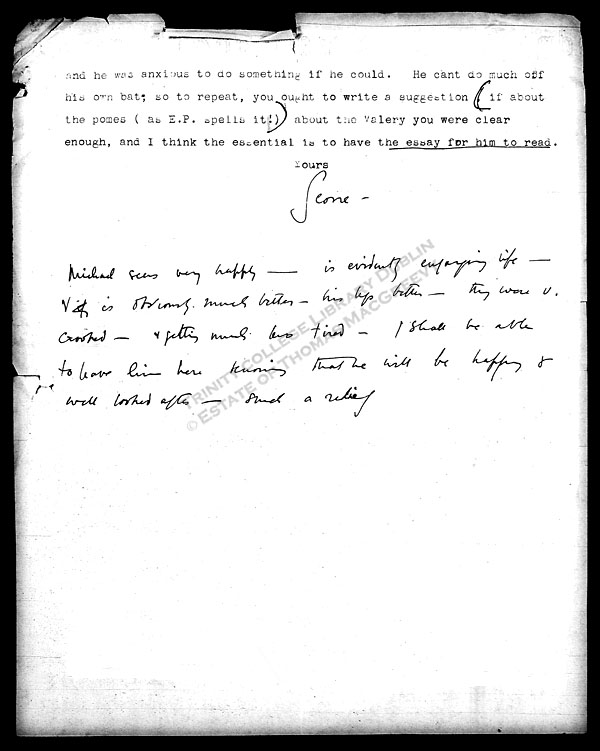 and he was anxious to do something if he could. He cant do much off
his own bat; so to repeat, you ought to write a suggestion (if about
the pomes ( as E.P. spells it!)) about the Valery you were clear
enough, and I think the essential is to have the essay for him to read.
Yours
Michael seems very happy — is evidently enjoying life —
& is obviously much better – his legs better – they were v.
crooked – & getting much less tired – I shall be able
to leave him here knowing that he will be happy &
well looked after – such a relief
TRINITY COLLEGE LIBRARY DUBLIN
© ESTATE OF THOMAS MACGREEVY